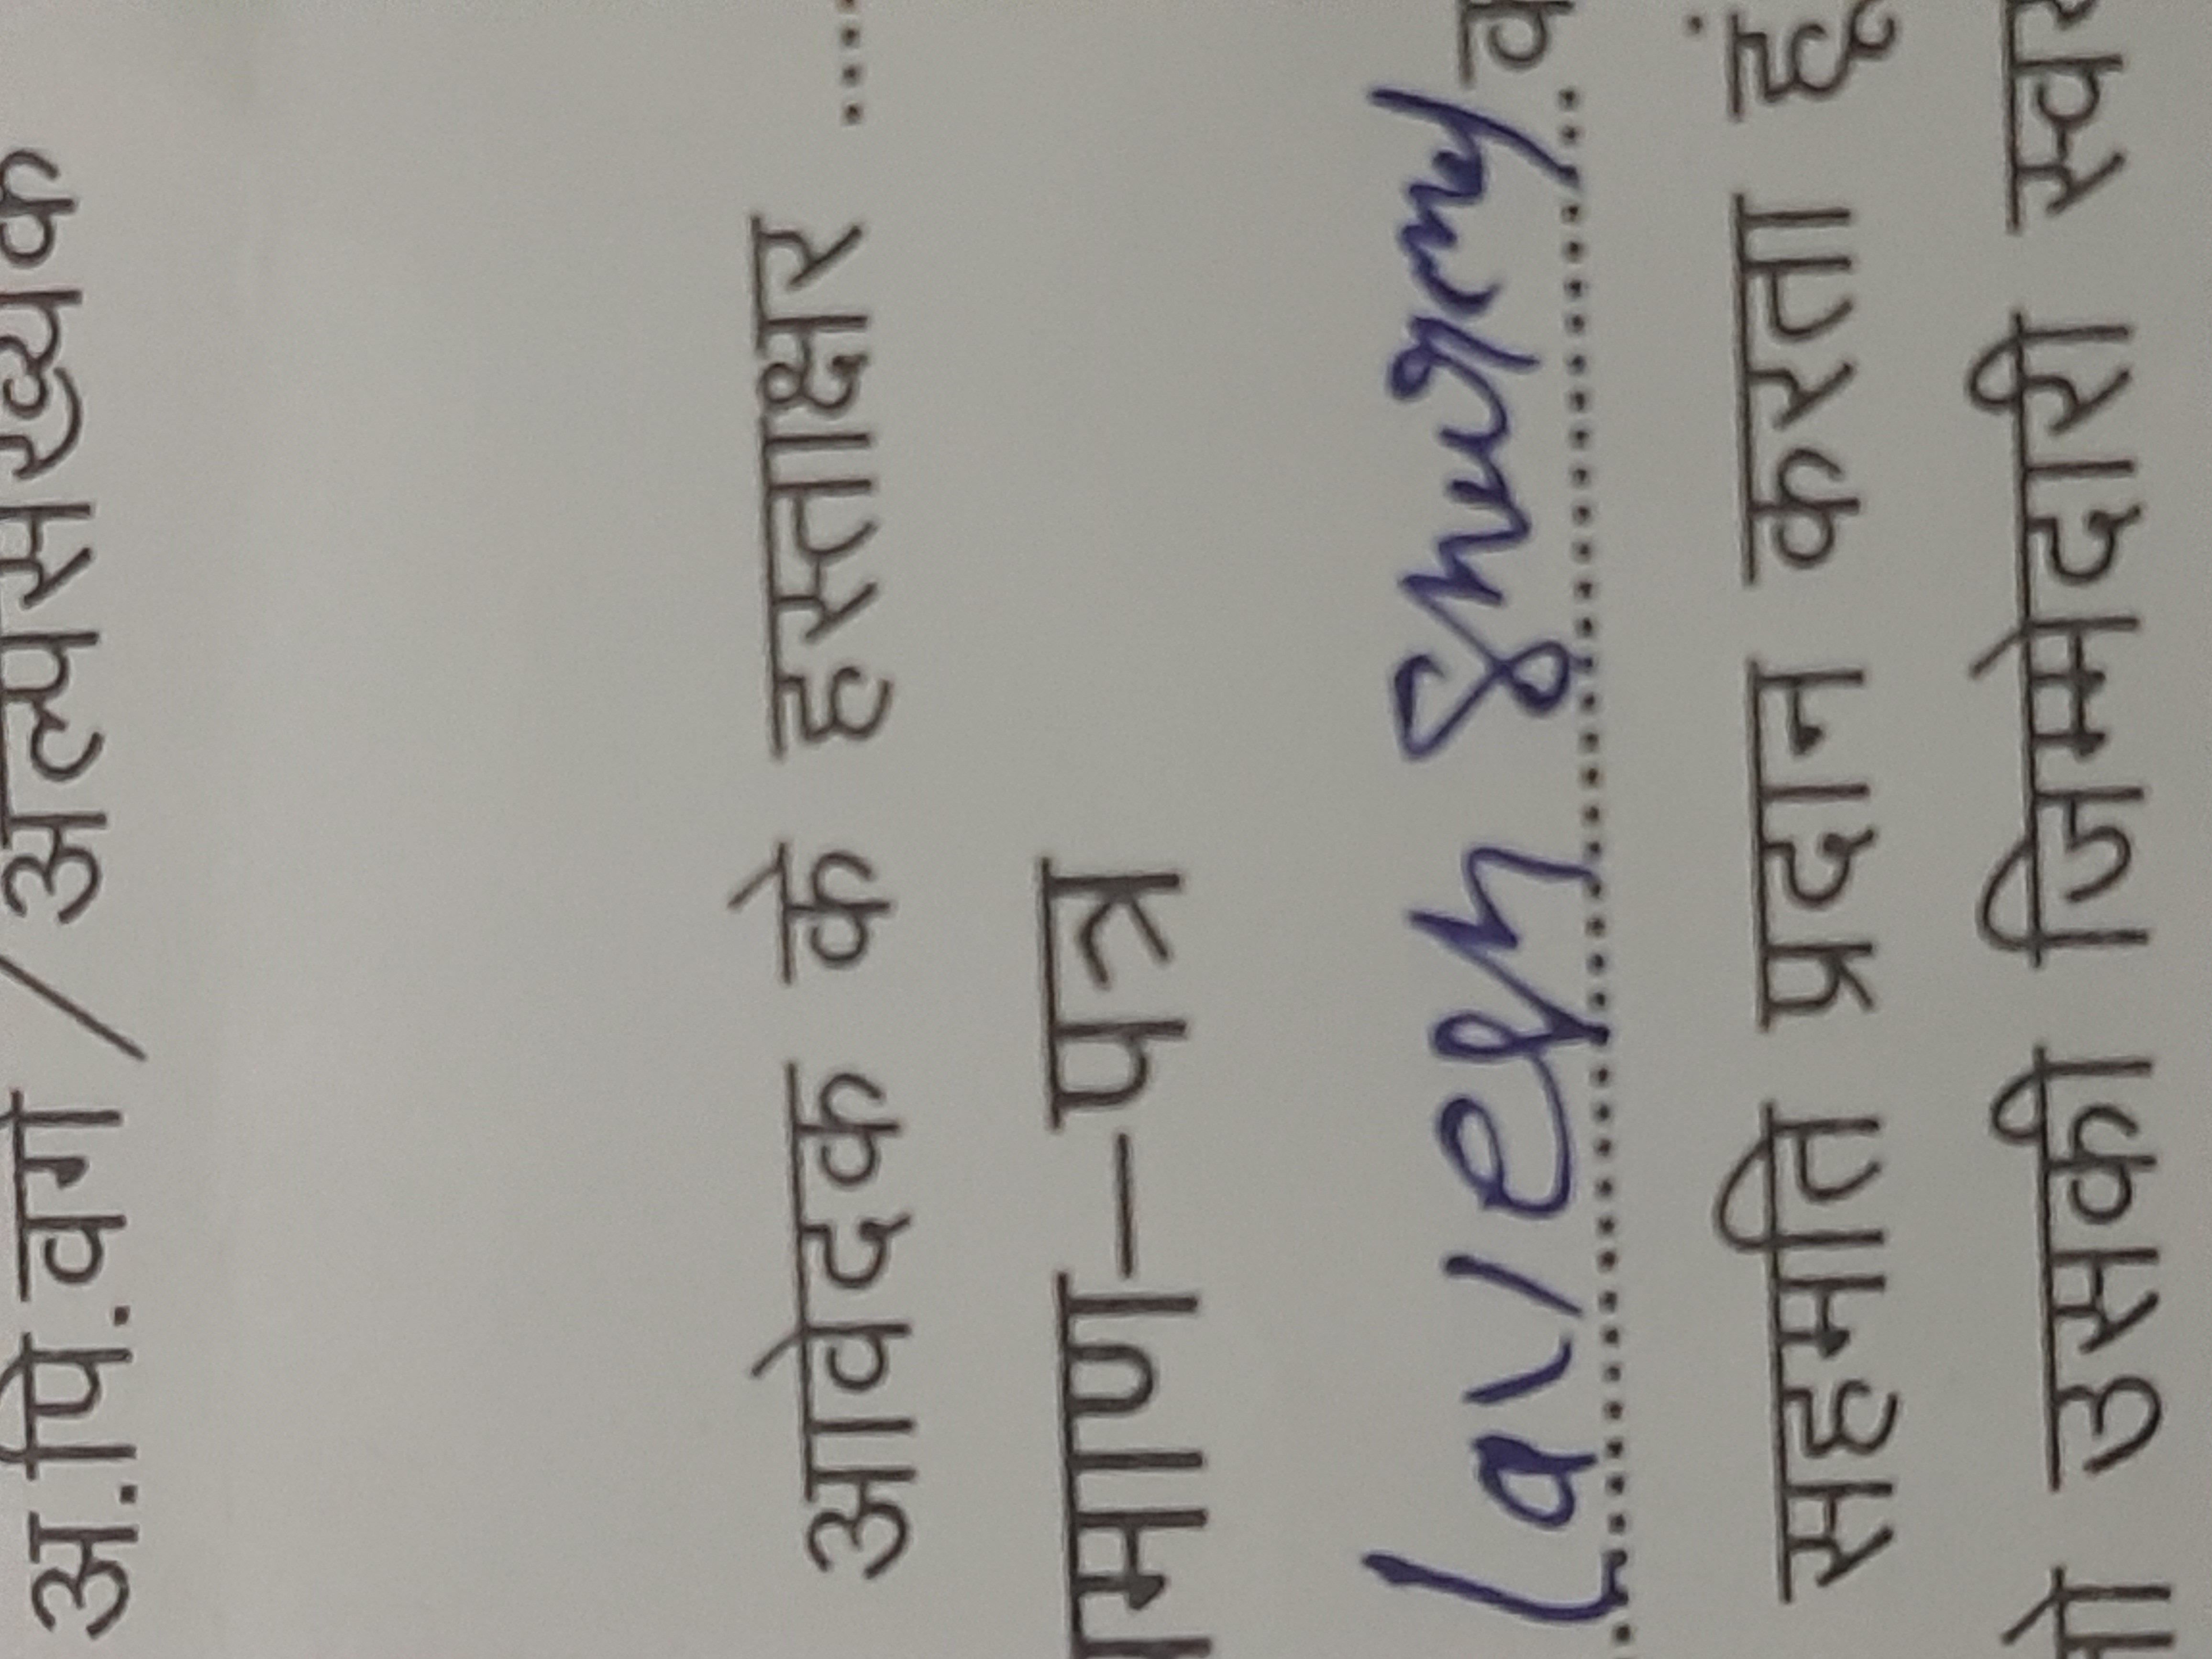 अ.पि.वर्ग / अल्पसंख्यक
आवेदक के हस्ताक्षर ....
माण–पत्र
Laviesh Shungrmy
सहमति प्रदान करता हूँ
उसकी जिम्मेदारी स्व